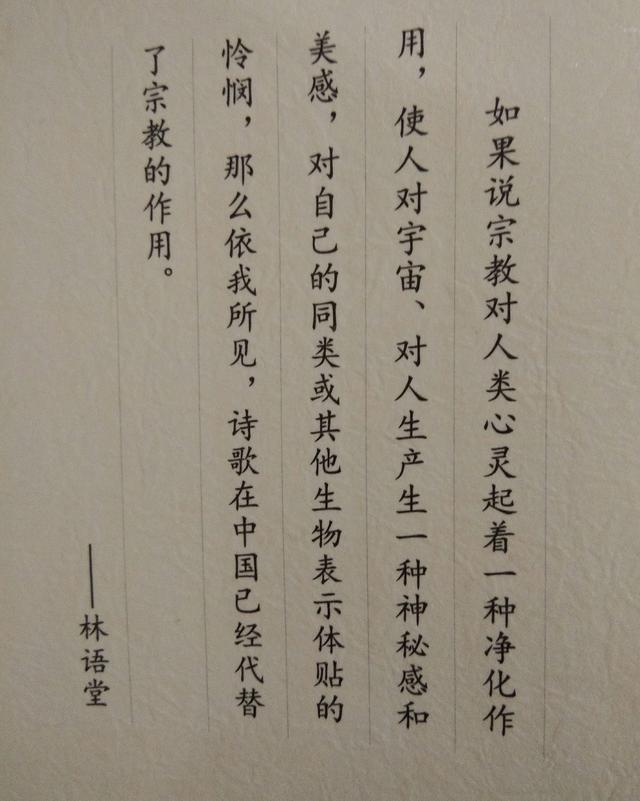 如果说宗教对人类心灵起着一种净化作
用，使人对宇宙、对人生产生一种神秘感和
美感，对自己的同类或其他生物表示体贴的
怜悯，那么依我所见，诗歌在中国已经代替
了宗教的作用。
——林语堂